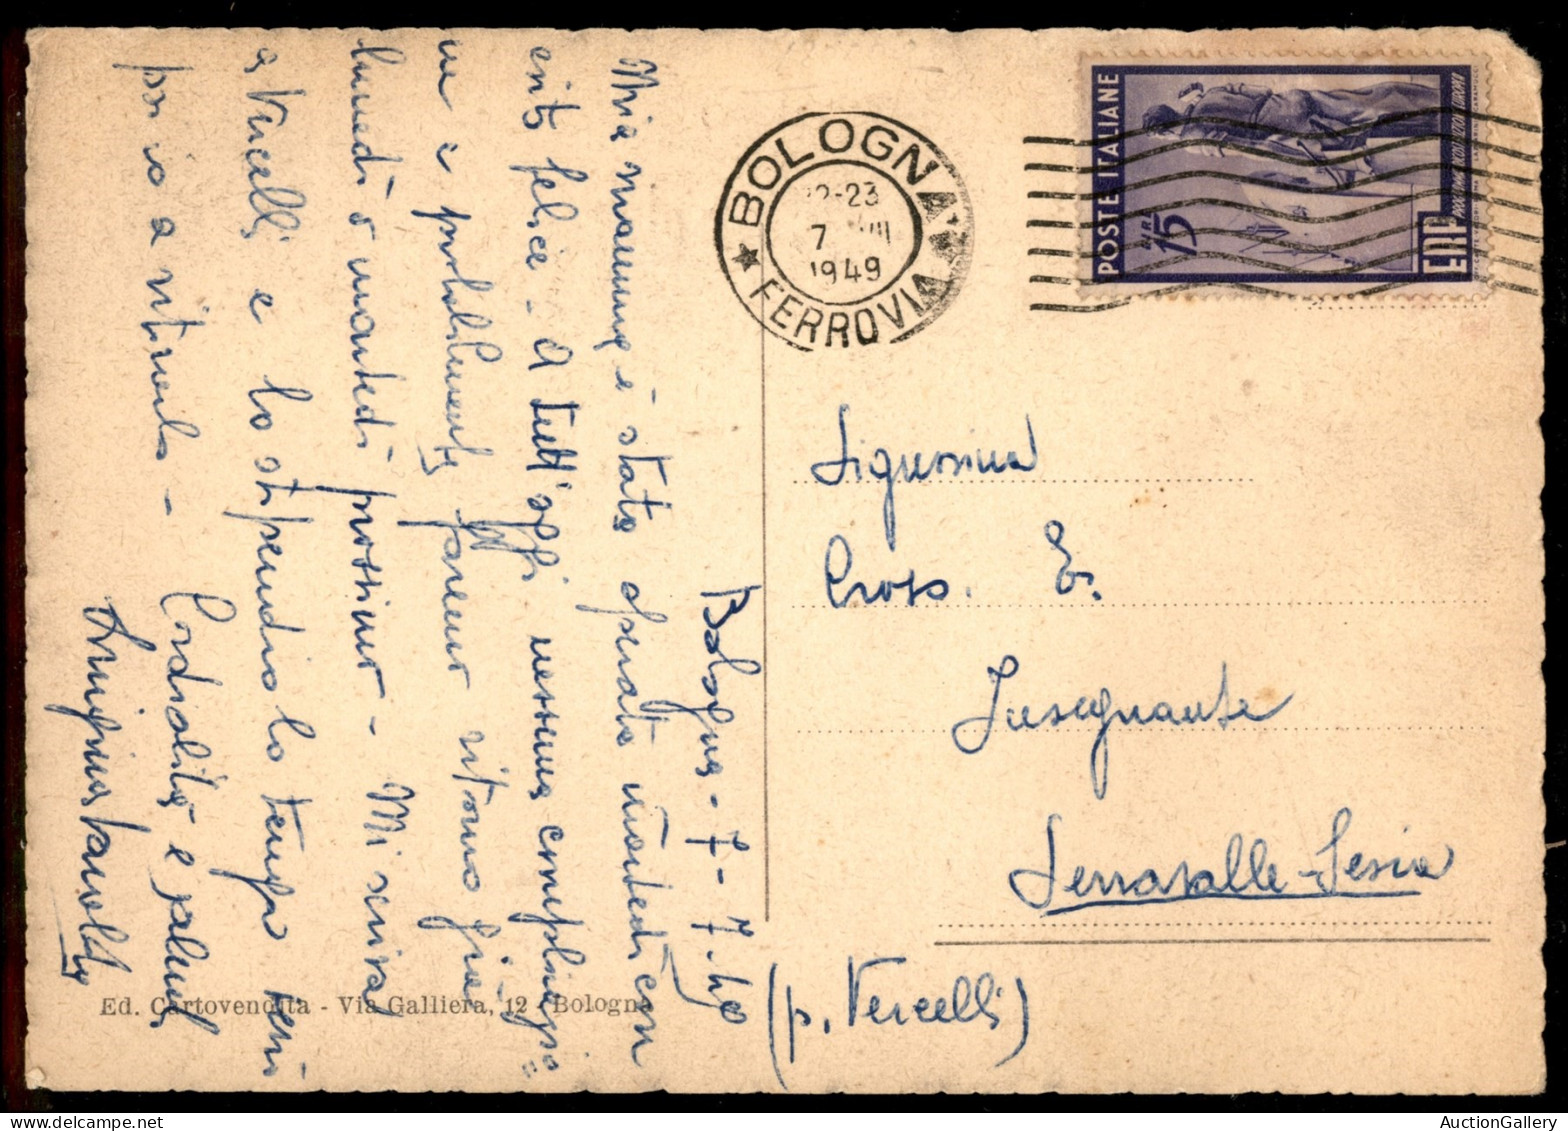 Bologna - 7 - 7. 49
Mia mamma è stata operata martedì con
esito felice - A tutt'oggi nessuna complicazio=
ne e probabilmente faremo ritorno fra
lunedì o martedì prossimo - Mi scriva
a Vercelli e lo stipendio lo tenga
per io a ritirarlo -
Cordialità e
Luigina
Ed. Cartovendita - Via Galliera, 12 - Bologna
BOLOGNA
FERROVIA
22-23
7 VII
1949
POSTE ITALIANE
LIRE 15
ERP
Signorina
Cross. E.
Insegnante
Serravalle-Sesia
(p. Vercelli)
AuctionGallery